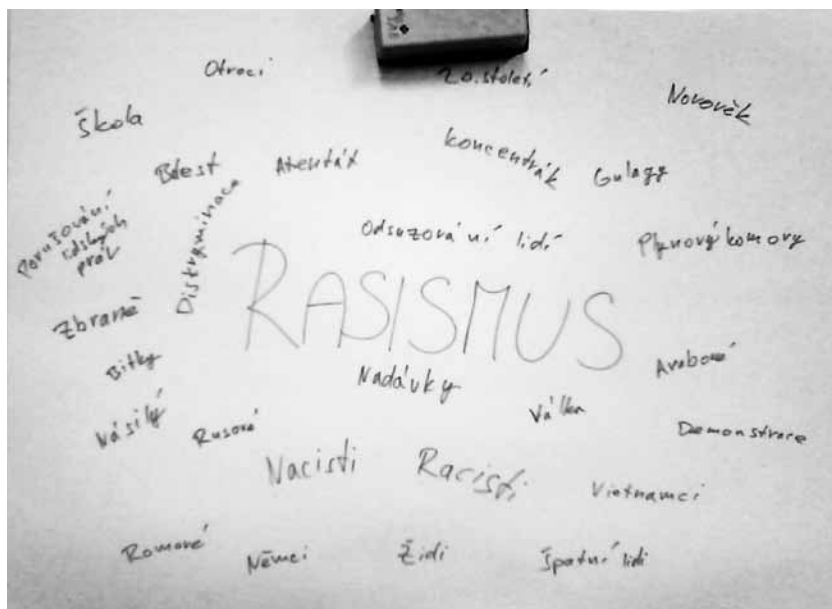 Otroci
20. století
Novověk
Škola
Bolest
Atentát
koncentrák
Gulagy
Porušování
lidských
práv
Diskryminace
Odsuzování lidí
Plynový komory
RASISMUS
Zbraně
Bitky
Nadávky
Arabové
Násilý
Rusové
Válka
Demonstrace
Nacisti
Racisti
Vietnamci
Romové
Němci
Židi
Špatní lidi